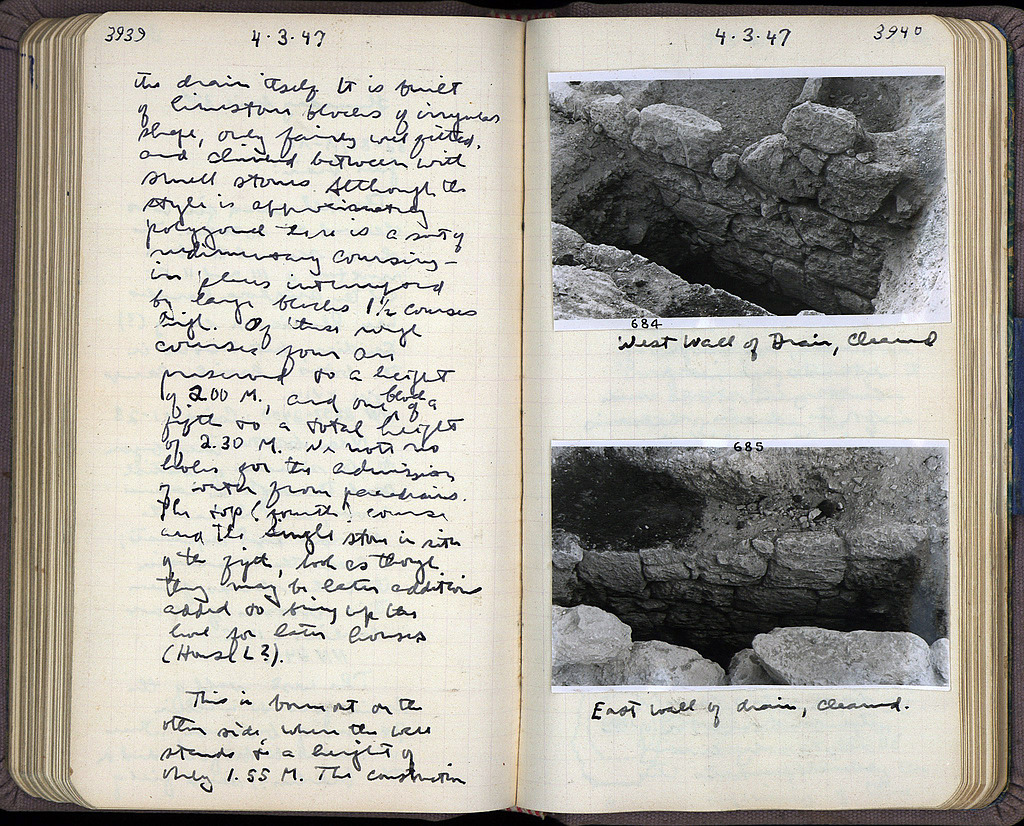 3939
4.3.47
the drain itself. It is built
of limestone blocks of irregular
shape, only fairly well fitted,
and chinked between with
small stones. Although the
style is approximately
polygonal there is a sort of
rudimentary coursing -
in places interrupted
by large blocks 1½ courses
high. Of these rough
courses four are
preserved to a height
of 2.00 M., and one block of a
fifth to a total height
of 2.30 M. We note no
holes for the admission
of water from
The top (fourth) course
and the single stone in situ
of the fifth, look as though
they may be later additions
added to bring up the
level for later houses
(House L?).
This is borne out on the
other side, where the wall
stands to a height of
only 1.55 M. The construction
4.3.47
3940
684
West Wall of Drain, Cleared
685
East wall of drain, cleared.